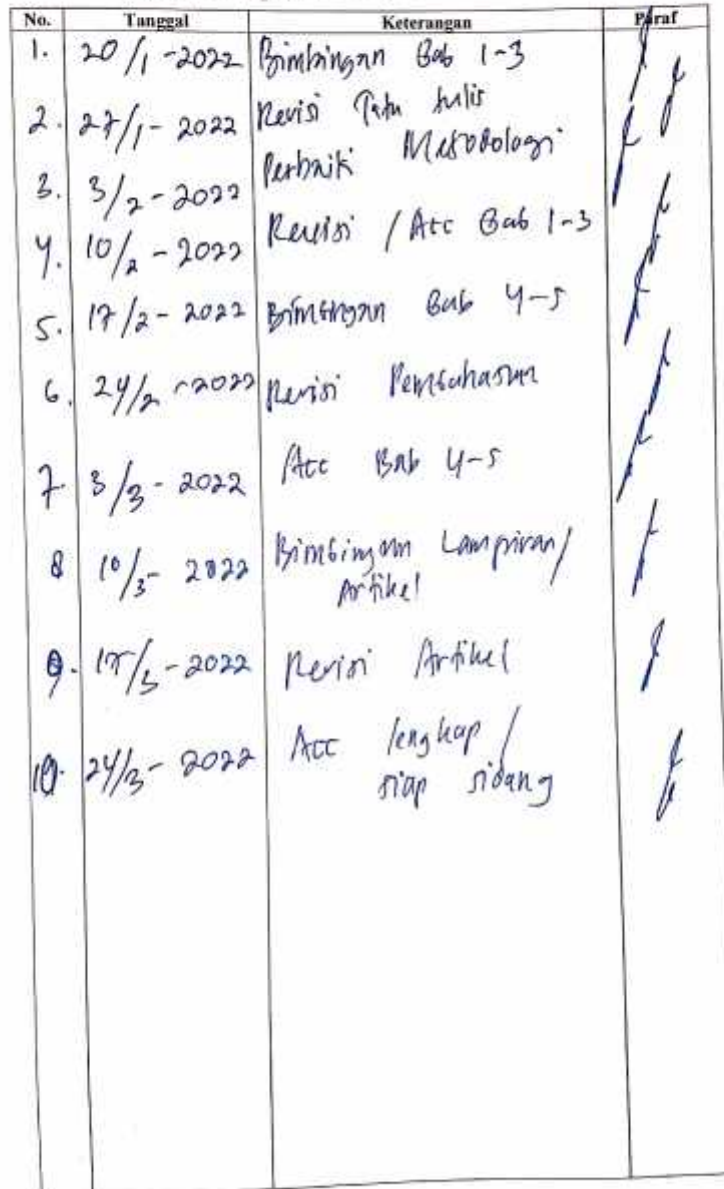 No. Tanggal Keterangan Paraf
1. 20/1-2022 Bimbingan Bab 1-3
2. 27/1-2022 Revisi Tata tulis
3. 3/2-2022 Perbaiki Metodologi
4. 10/2-2022 Revisi / Acc Bab 1-3
5. 17/2-2022 Bimbingan Bab 4-5
6. 24/2-2022 Revisi Pembahasan
7. 3/3-2022 Acc Bab 4-5
8 10/3-2022 Bimbingan Lampiran/
Artikel
9. 17/3-2022 Revisi Artikel
10. 24/3-2022 Acc lengkap /
siap sidang